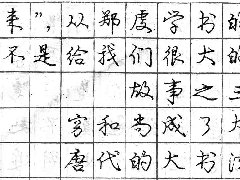 来”，从郑虔学书的
不是给我们很大的
故事之三
穷和尚成了大
唐代的大书法